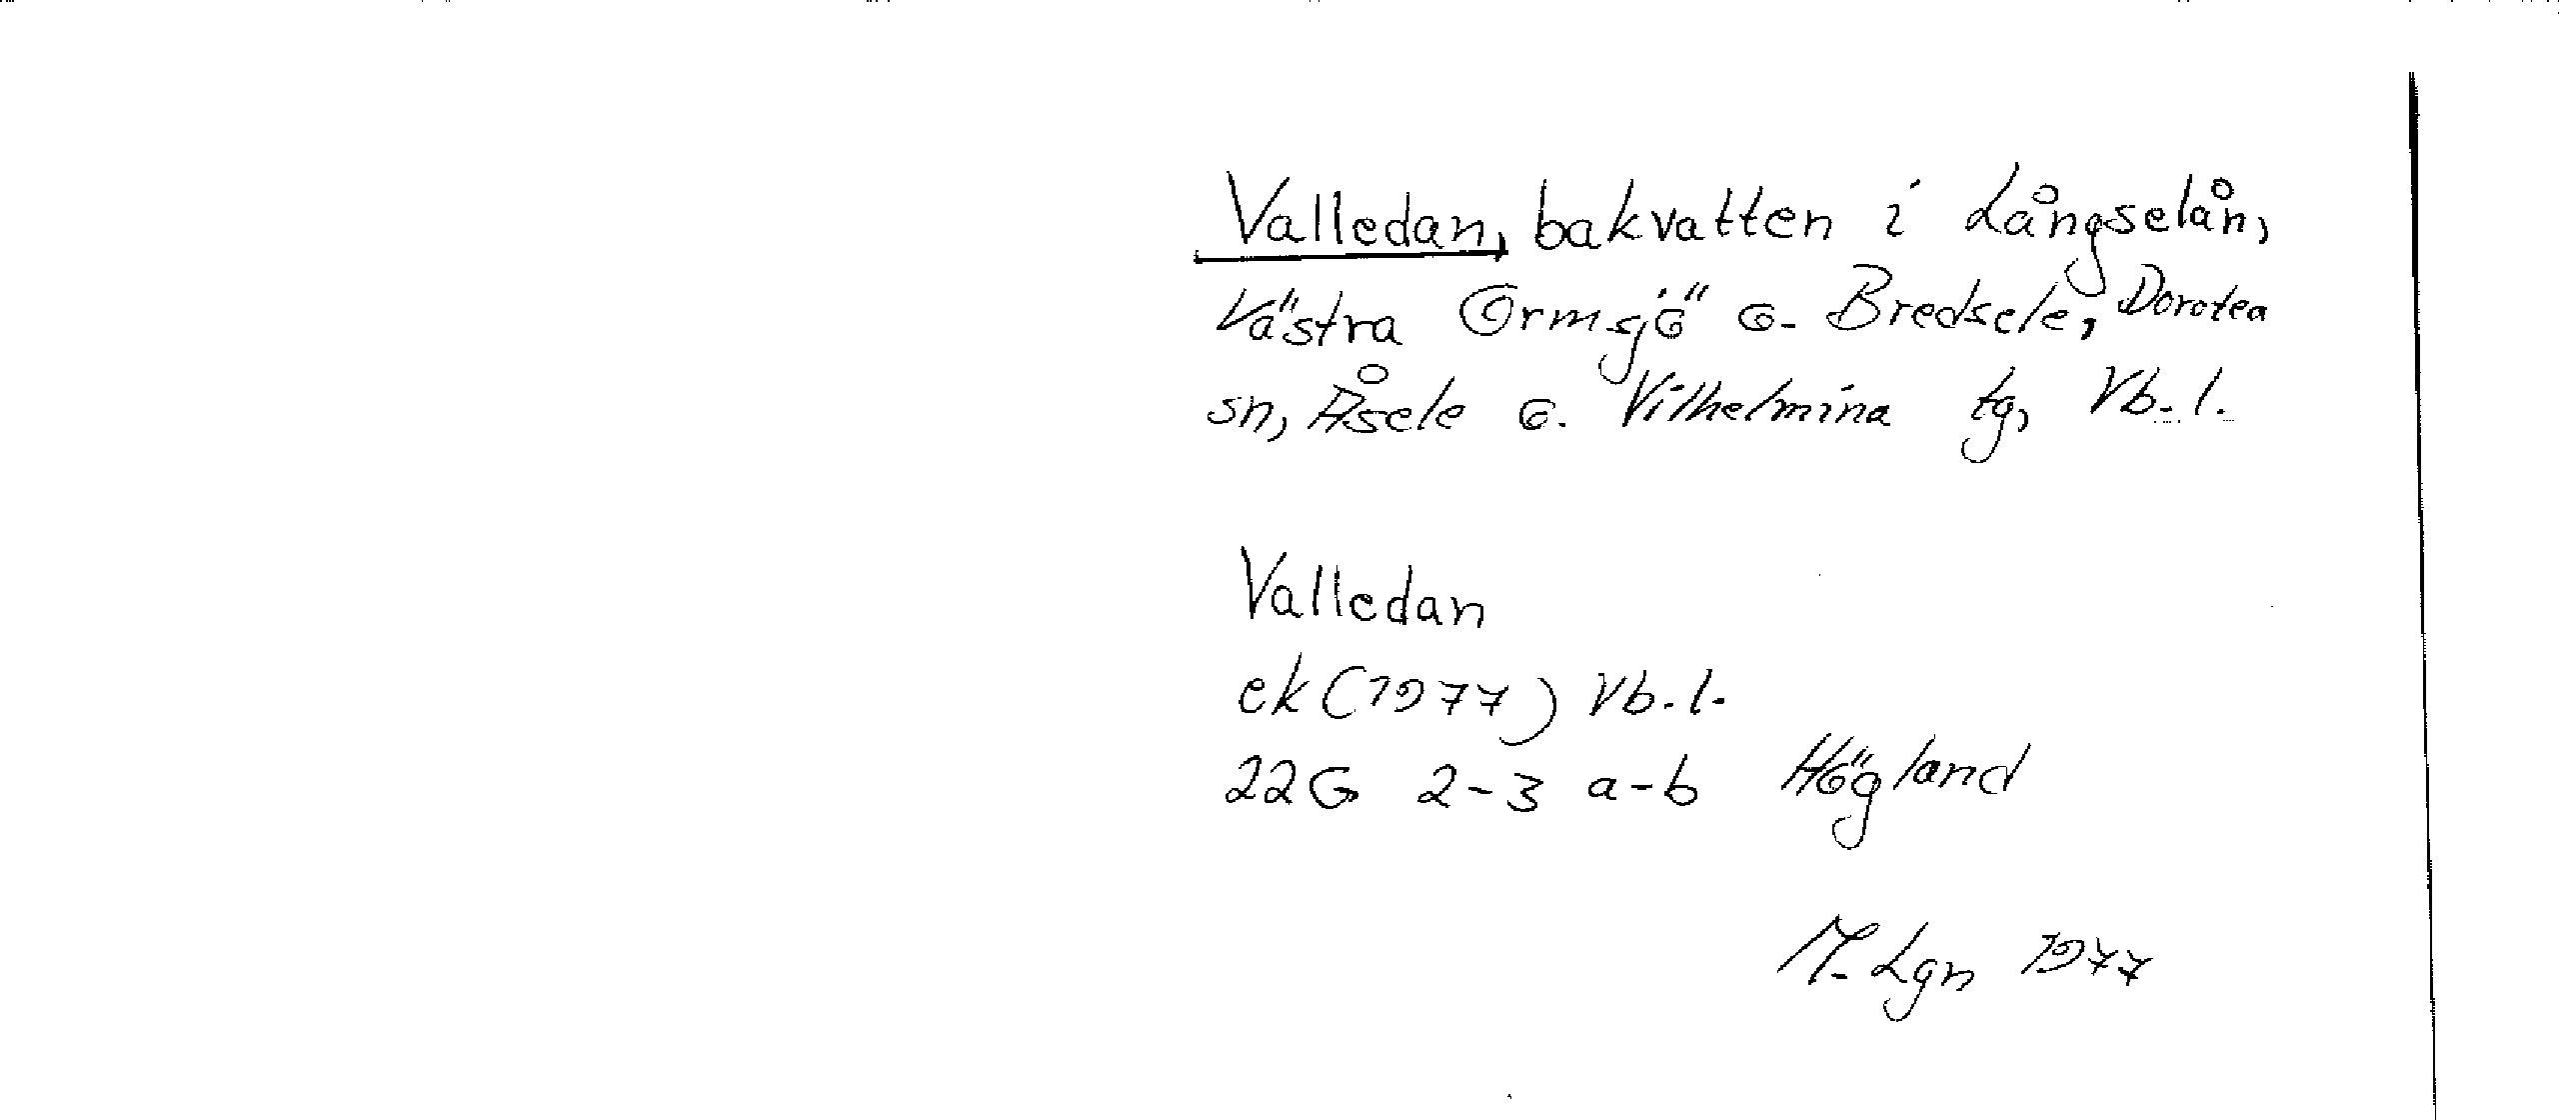 Valledan, bakvatten i Långselån,
Västra Ormsjö o. Bredsele, Dorotea
sn, Åsele o. Vilhelmina tg, Vb. l.
Valledan
ek (1977) Vb. l.
22G 2-3 a-b Högland
M. Lgn 1977